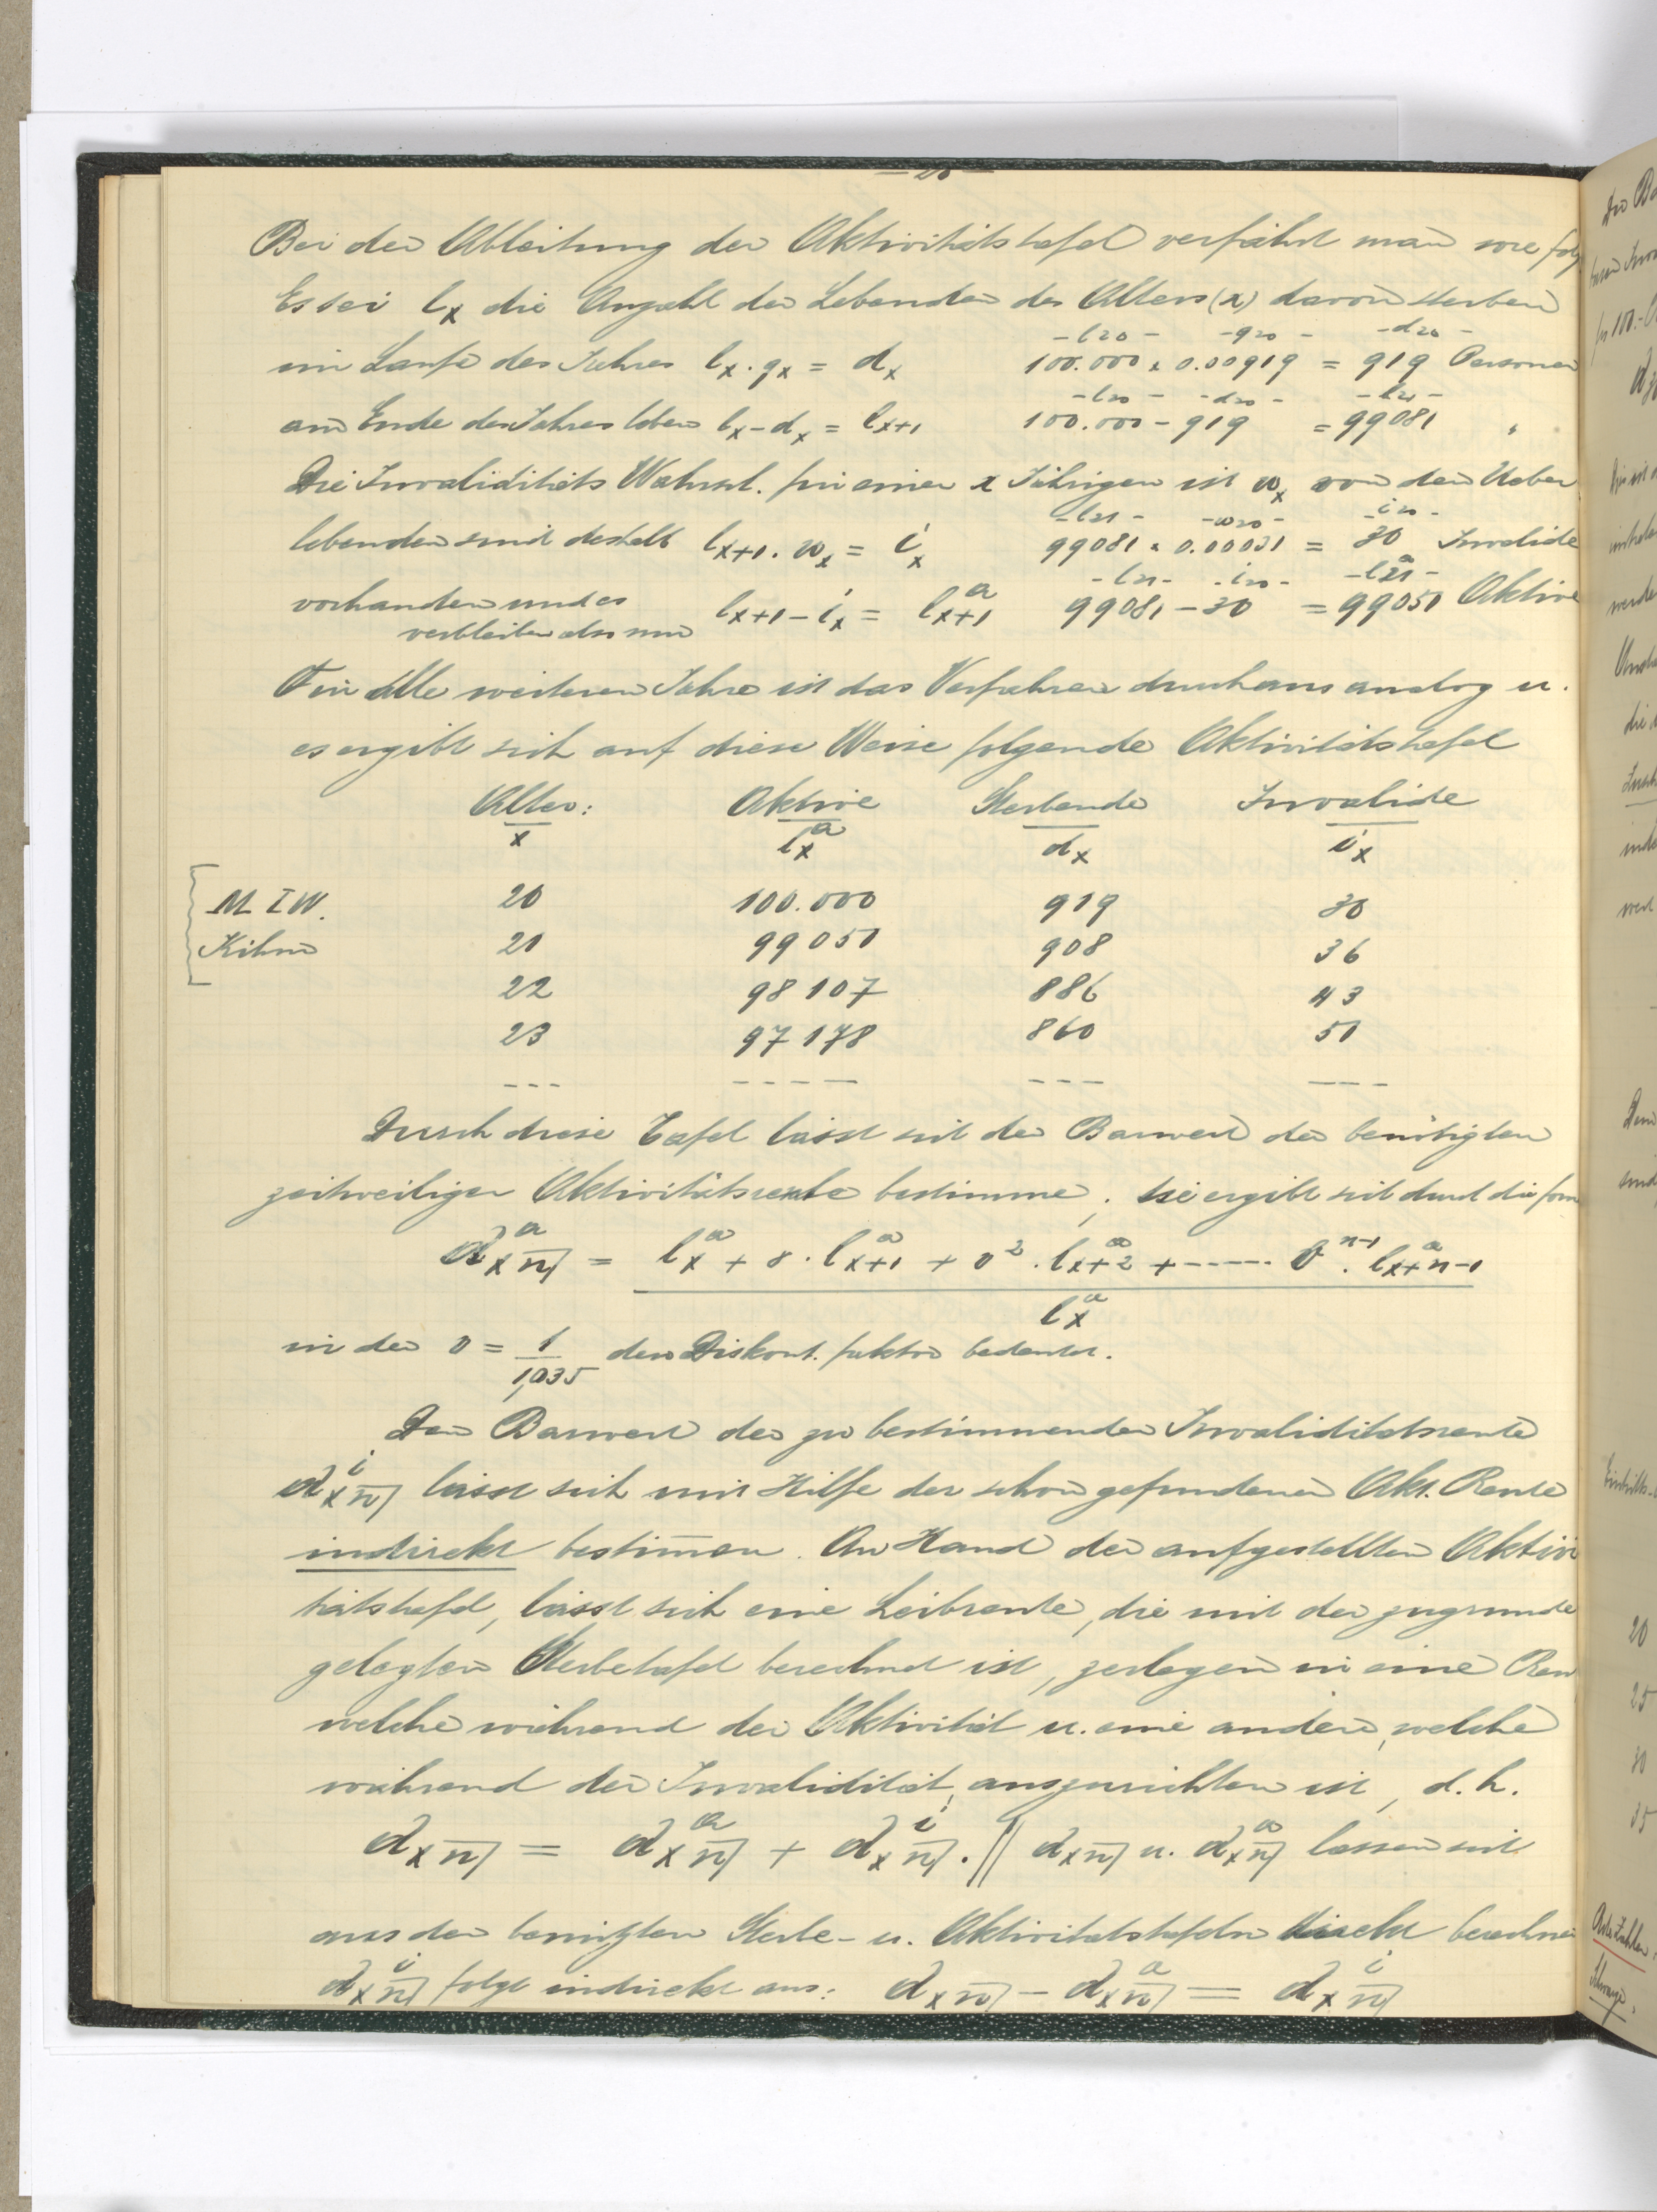 Bei der Ableitung der Aktivitätstafel verfährt man wie folg
Es sei lx die Anzahl der Lebenden des Alters (x) davon sterben
-l20- -q20- -d20-
im Laufe des Jahres lx · qx = dx 100.000 x 0.00919 = 919 Personen
-l20- -d20- -l21-
am Ende des Jahres leben lx - dx = lx+1 100.000 - 919 = 99081 "
Die Invaliditäts Wahrsch. für einen x Jährigen ist wx von den Ueber
-l21- -w20- -i20-
lebenden sind deshalb lx+1 . wx = ix 99081 x 0.00031 = 30 Invalide
-l21- -i20- -l21^a-
vorhanden und es lx+1 - ix = l^a x+1 99081 - 30 = 99051 Aktive
verbleiben also nur
Für alle weiteren Jahre ist das Verfahren durchaus analog u.
es ergibt sich auf diese Weise folgende Aktivitätstafel
Alter: Aktive Sterbende Invalide
x l^a x dx ix
M I W. 20 100.000 919 30
Kihm 21 99051 908 36
22 98107 886 43
23 97178 860 51
--- ----- --- ----
Durch diese Tafel lässt sich der Barwert der benötigten
zeitweiligen Aktivitätsrente bestimme, sie ergibt sich durch die form
a^a x n̅| = l^a x + v · l^a x+1 + v² . l^a x+2 + ------ v^n-1 . l^a x+n-1
l^a x
in der v = 1/1,035 den Diskont. faktor bedeutet.
Der Barwert der zu bestimmenden Invaliditätsrente
a^i x n̅| lässt sich mit Hilfe der schon gefundenen Akt. Rente
indirekt bestim̅en. An Hand der aufgestellten Aktivi
tätstafel, lässt sich eine Leibrente, die mit der zugrunde
gelegten Sterbetafel berechnet ist, zerlegen in eine Ren
welche während der Aktivität u. eine andere, welche
während der Invalidität, auszurichten ist, d.h.
a x n̅| = a^a x n̅| + a^i x n̅| . || a x n̅| u. a^a x n̅| lassen sich
aus den benützten Sterbe- u. Aktivitätstafeln direkt berechnen
a^i x n̅| folgt indirekt aus: a x n̅| - a^a x n̅| = a^i x n̅|